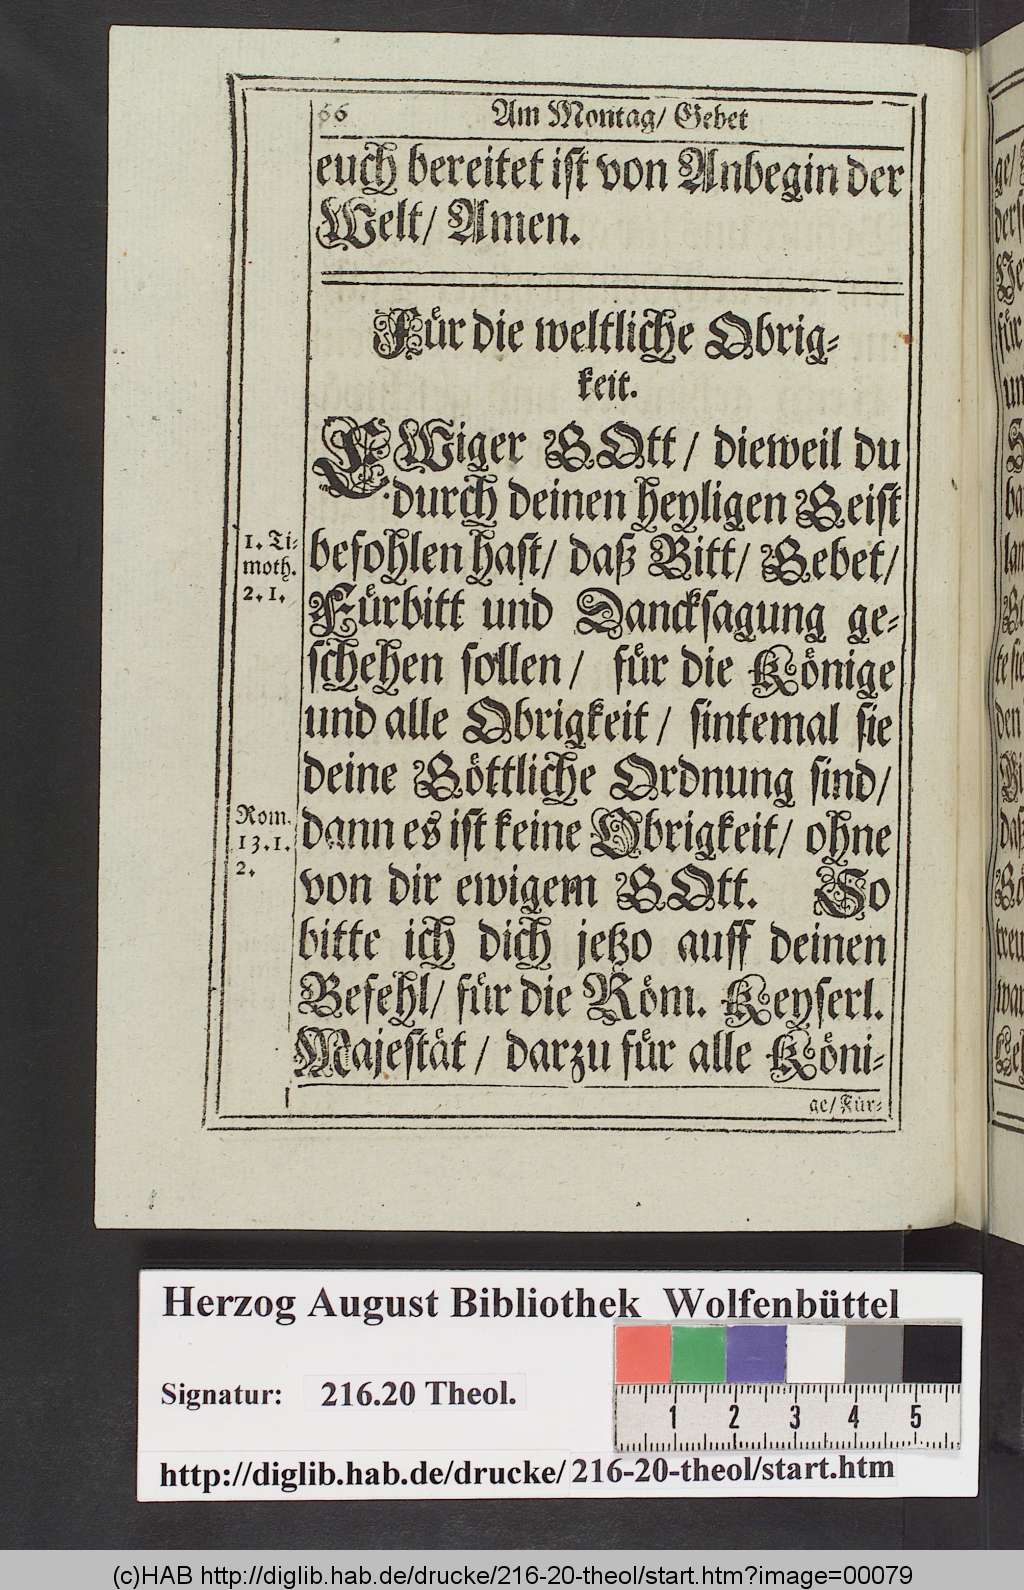 66 Am Montag/ Gebet
euch bereitet ist von Anbegin der
Welt/ Amen.
Für die weltliche Obrig-
keit.
EWiger GOtt/ dieweil du
durch deinen heyligen Geist
1. Ti-
moth.
2. 1.
befohlen hast/ daß Bitt/ Gebet/
Fürbitt und Dancksagung ge-
schehen sollen/ für die Könige
und alle Obrigkeit/ sintemal sie
deine Göttliche Ordnung sind/
Rom.
13. 1.
2.
dann es ist keine Obrigkeit/ ohne
von dir ewigem GOtt. So
bitte ich dich jetzo auff deinen
Befehl/ für die Röm. Keyserl.
Majestät/ darzu für alle Köni-
ge/ Für-
Herzog August Bibliothek Wolfenbüttel
Signatur: 216.20 Theol.
1 2 3 4 5
http://diglib.hab.de/drucke/216-20-theol/start.htm
(c)HAB http://diglib.hab.de/drucke/216-20-theol/start.htm?image=00079